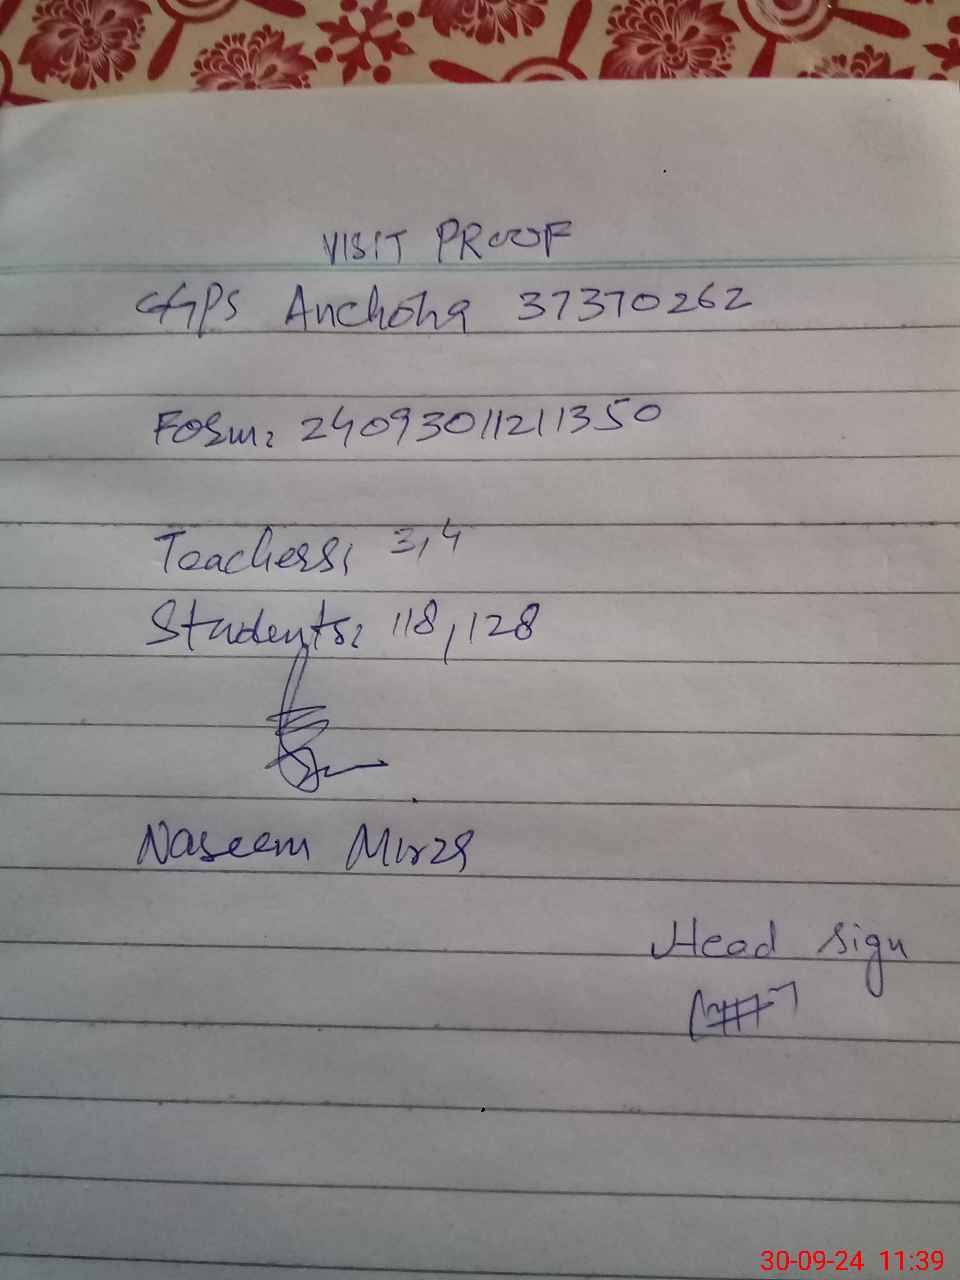 VISIT PROOF
GGPS Anchoha 37370262
Form: 24093011211350
Teachers: 3,4
Students: 118,128
Naseem Mirza
Head sign
30-09-24 11:39